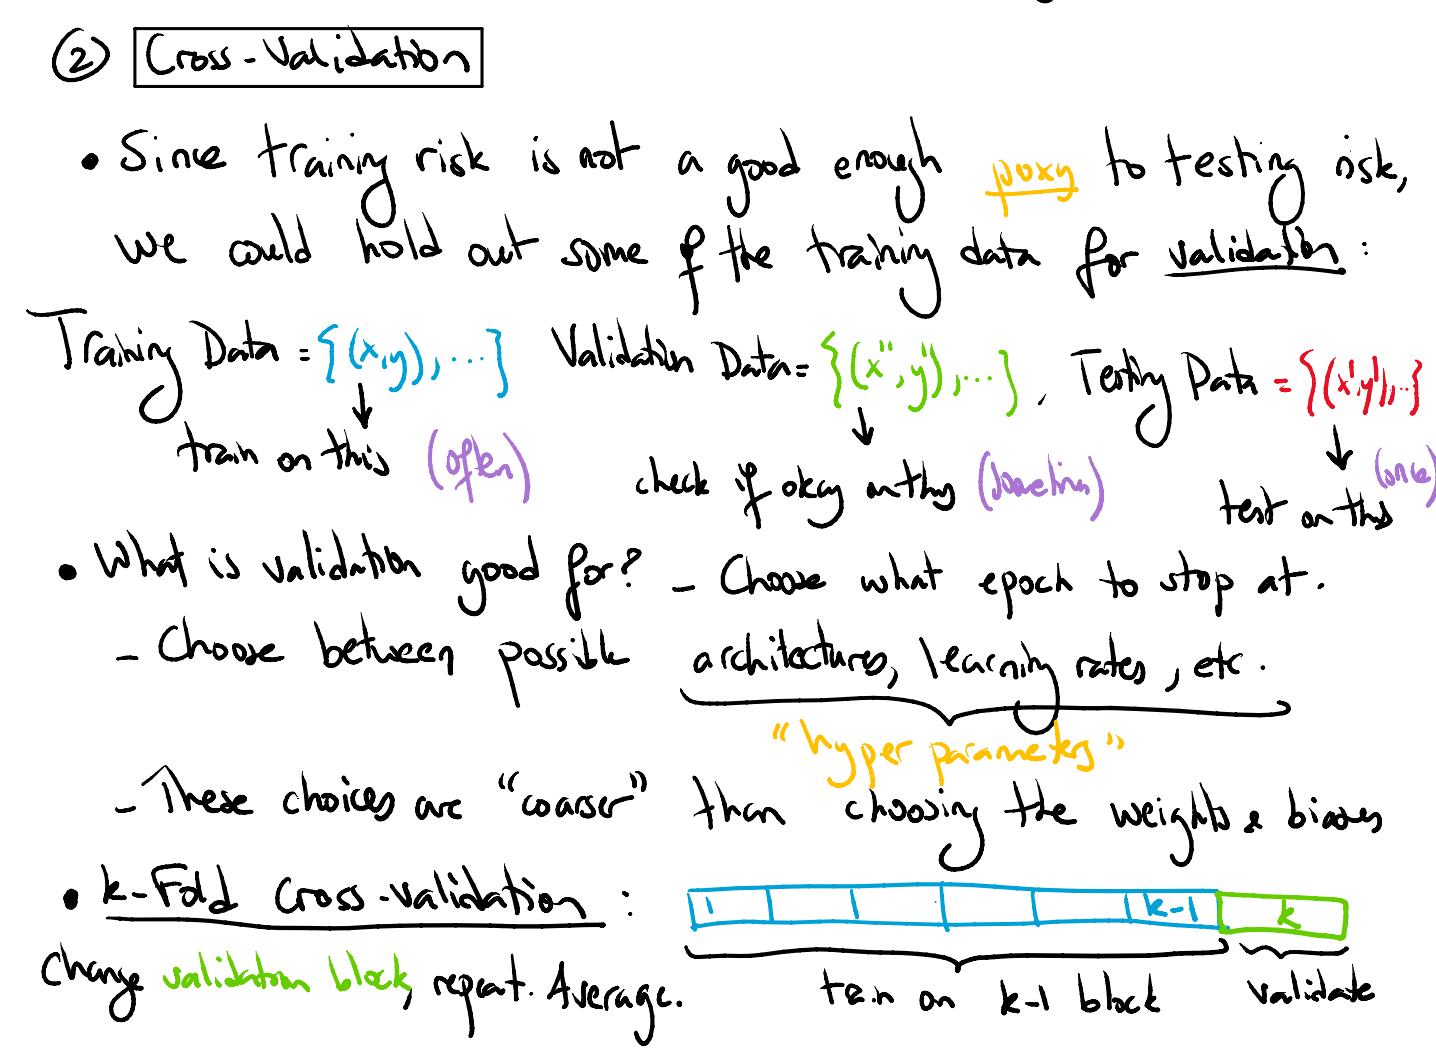 ② Cross-Validation
• Since training risk is not a good enough poxy to testing risk,
we could hold out some of the training data for validation:
Training Data = {(x,y),...} Validation Data = {(x'',y''),...}, Testing Data = {(x',y'),..}
train on this (often) check if okay on this (sometimes) test on this (once)
• What is validation good for? – Choose what epoch to stop at.
– Choose between possible architectures, learning rates, etc.
"hyper parameters"
– These choices are "coarser" than choosing the weights & biases
• k-Fold Cross-validation:
1 k-1 k
change validation block, repeat. Average.
train on k-1 block validate